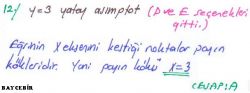 12-) y=3 yatay asimptot (D ve E seçenekleri
gitti.)
Eğrinin X eksenini kestiği noktalar payın
kökleridir. Yani payın kökü x=3
CEVAP:A
BAYCEBİR